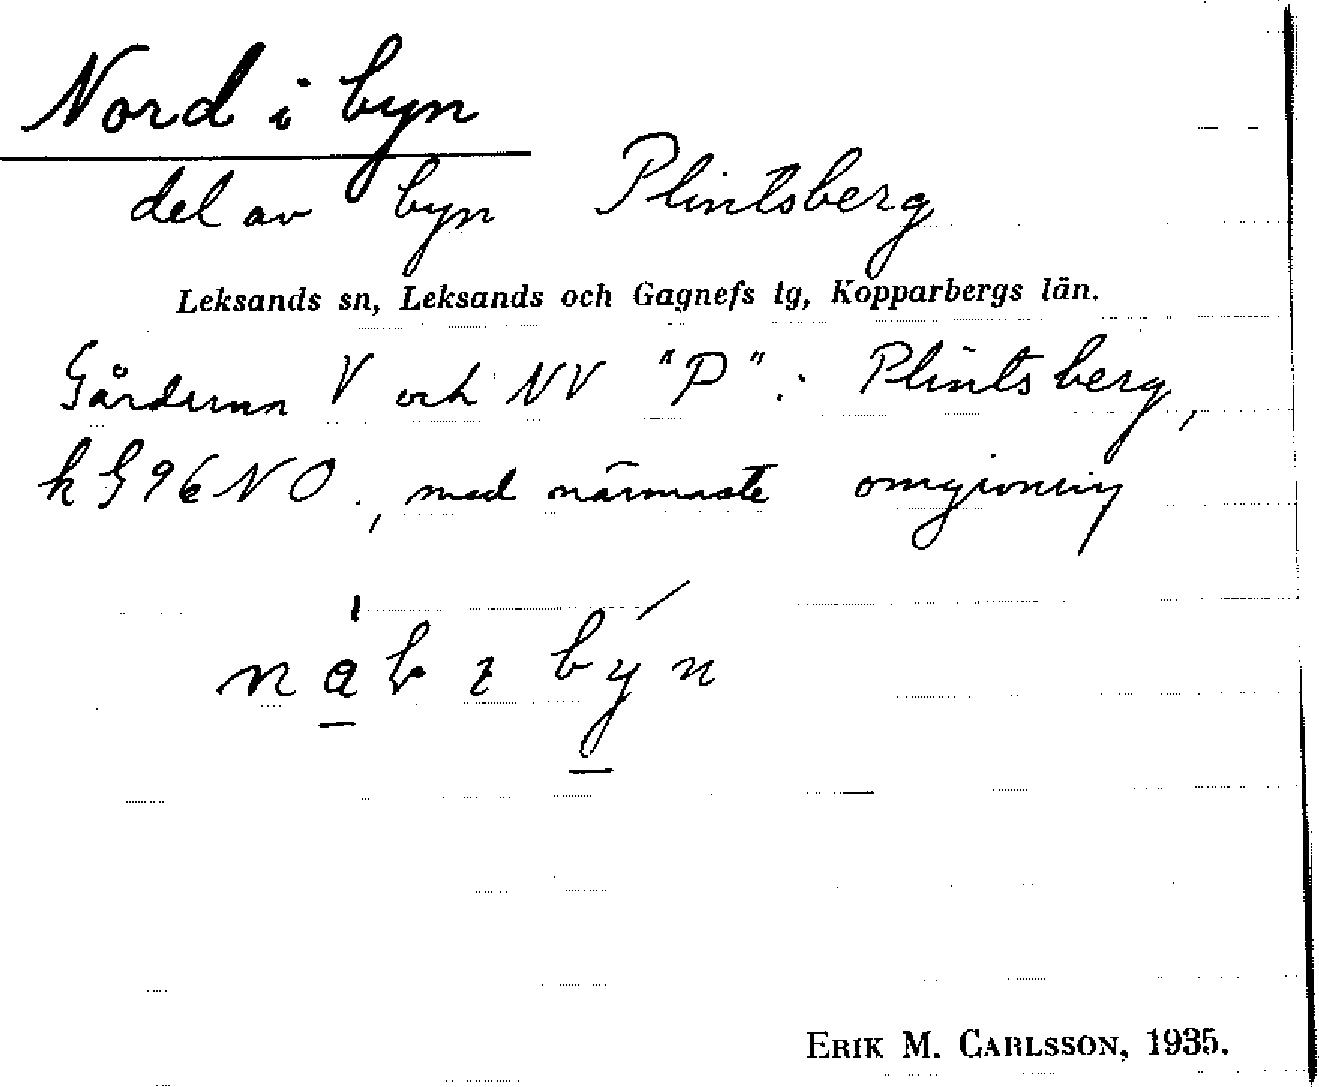 Nord i byn
del av byn Plintsberg
Leksands sn, Leksands och Gagnefs tg, Kopparbergs län.
Gårdarna V och NV "P" i Plintsberg,
k G 96 NO, med närmaste omgivning
ERIK M. CARLSSON, 1935.